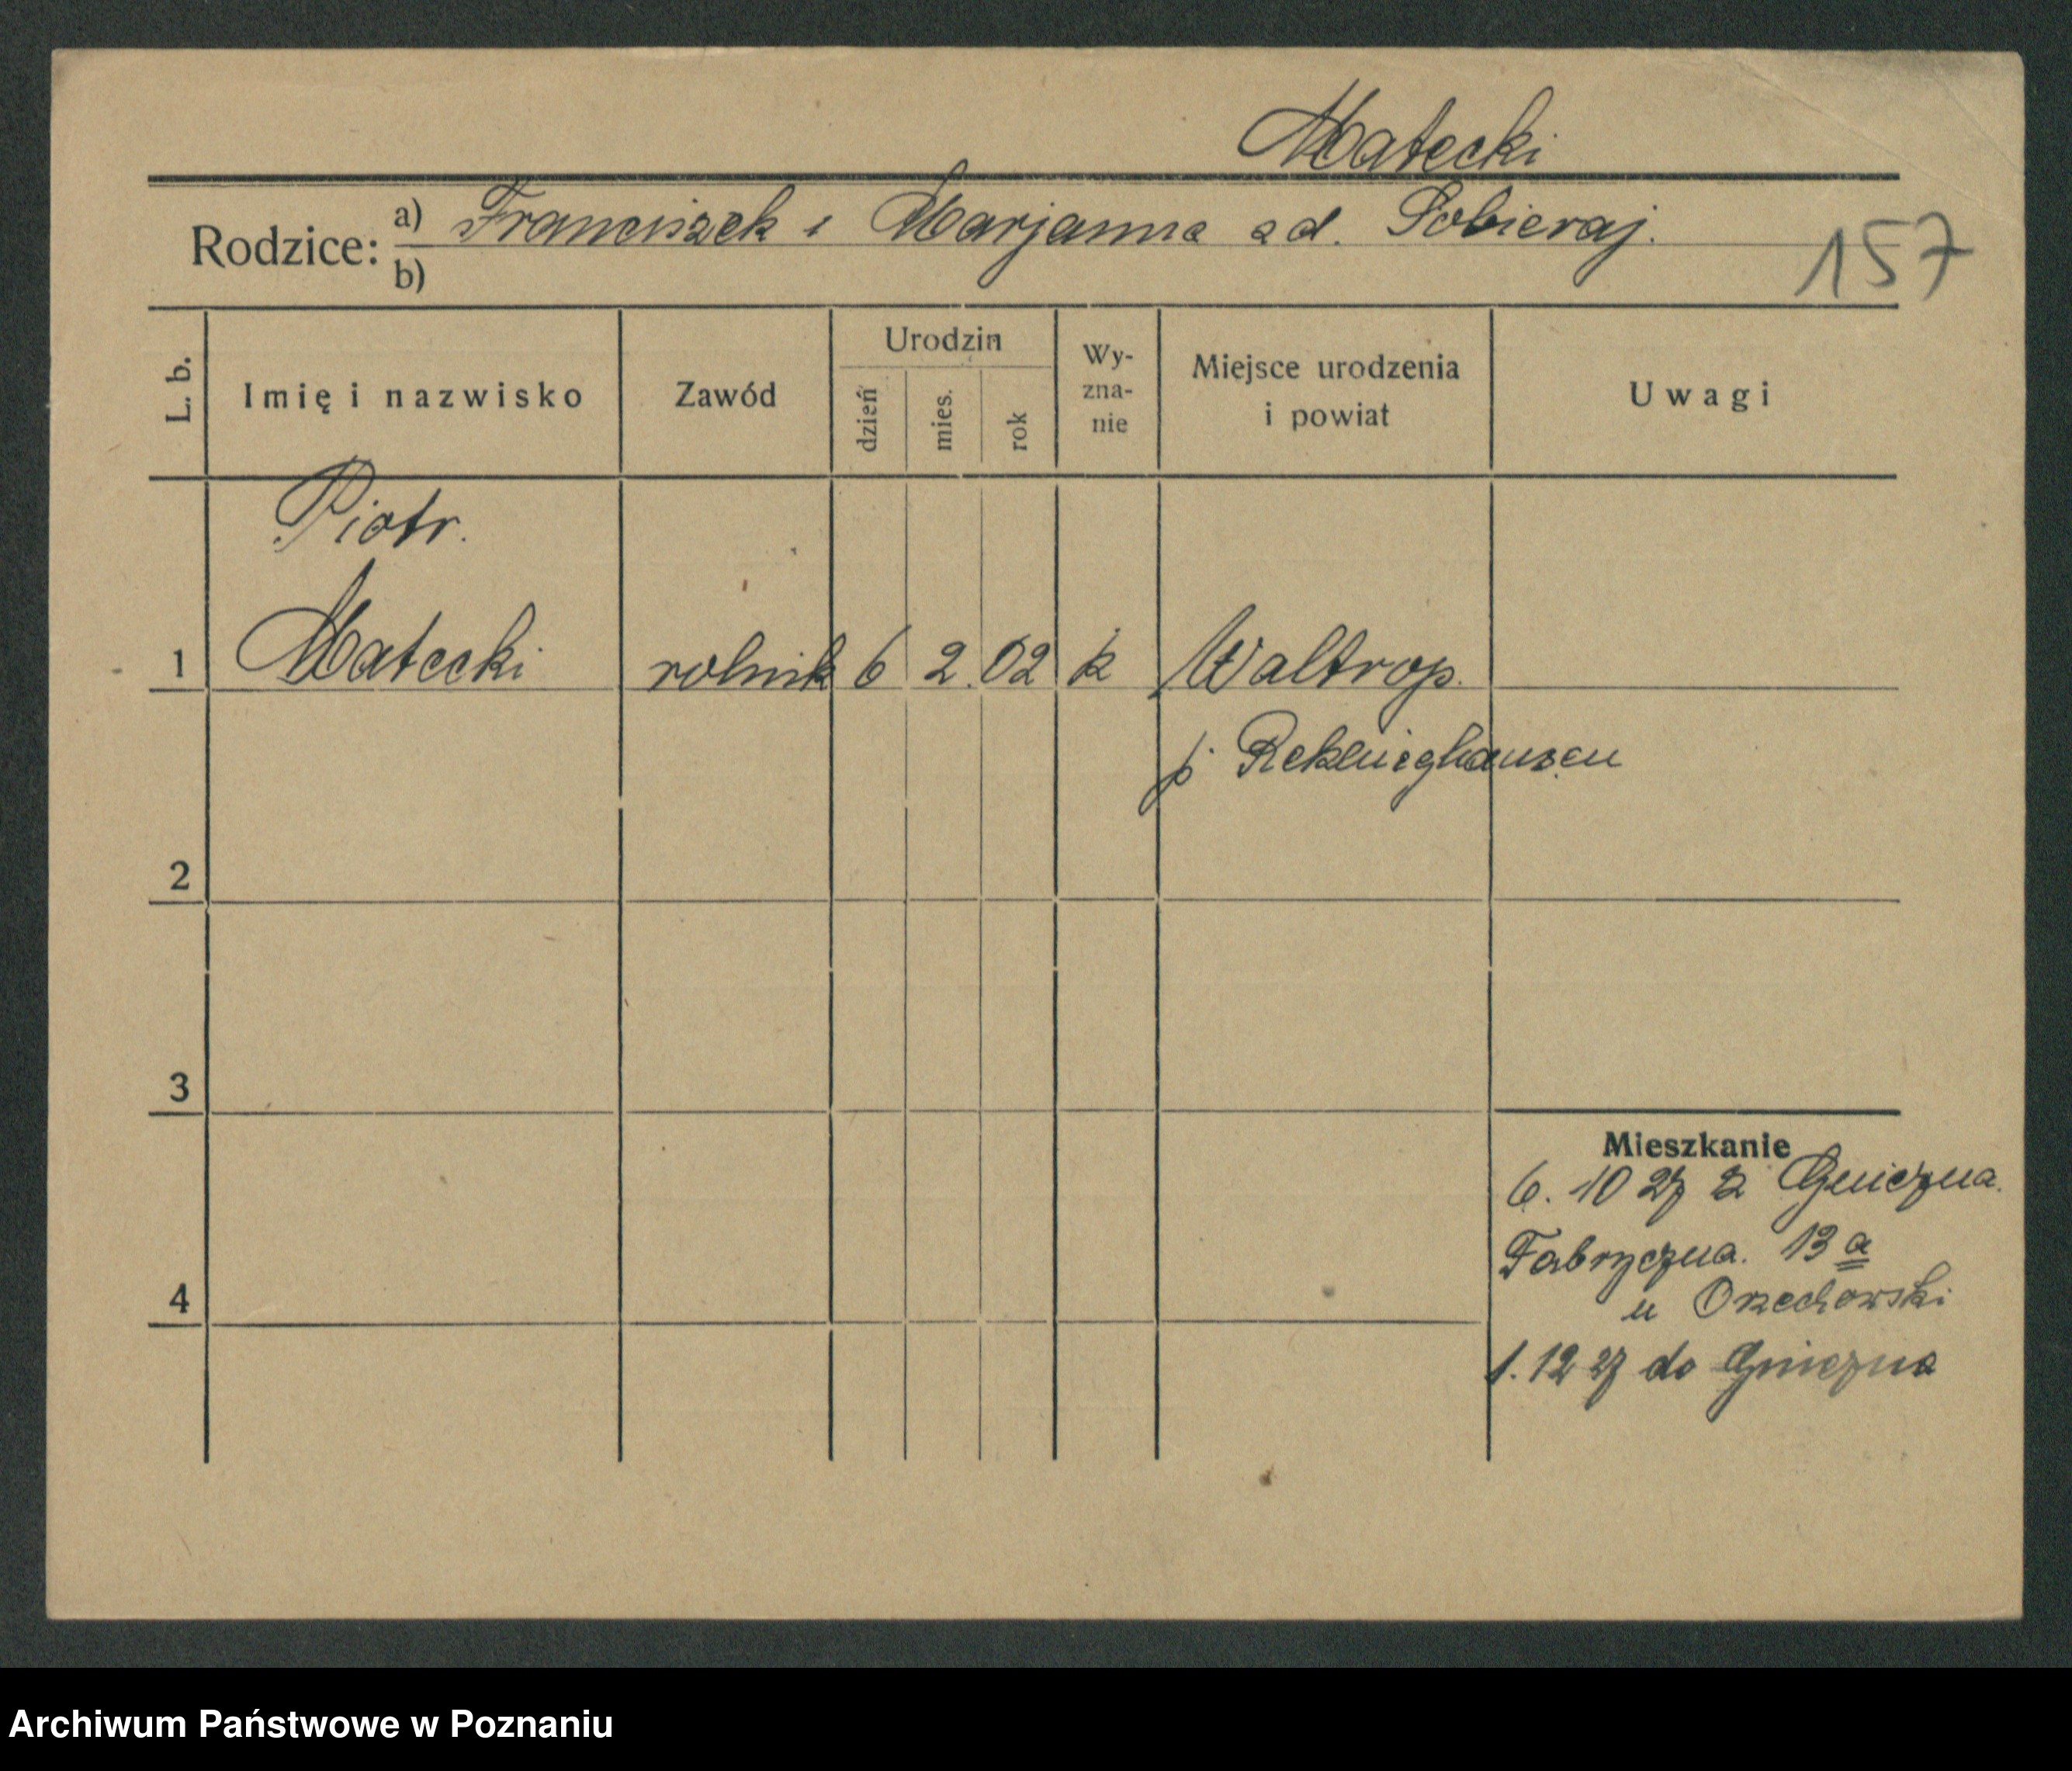 Matecki
Rodzice: a) Franciszek i Marjanna od. Sobieraj.
b)
157
L. b. Imię i nazwisko Zawód Urodzin dzień mies. rok Wy-zna-nie Miejsce urodzenia i powiat Uwagi
Piotr.
1 Matecki rolnik 6 2. 02 k Waltrop.
p. Reklinghausen
2
3
Mieszkanie
6. 10 27 z Gniezna.
Fabryczna. 13 a
u Orzechowski
4
1. 12 27 do Gniezna
Archiwum Państwowe w Poznaniu